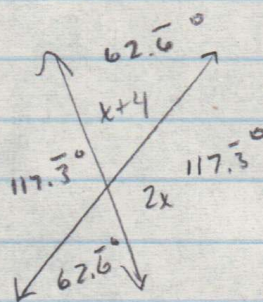 62.6̅°
x+4
117.3̅°
117.3̅°
2x
62.6̅°